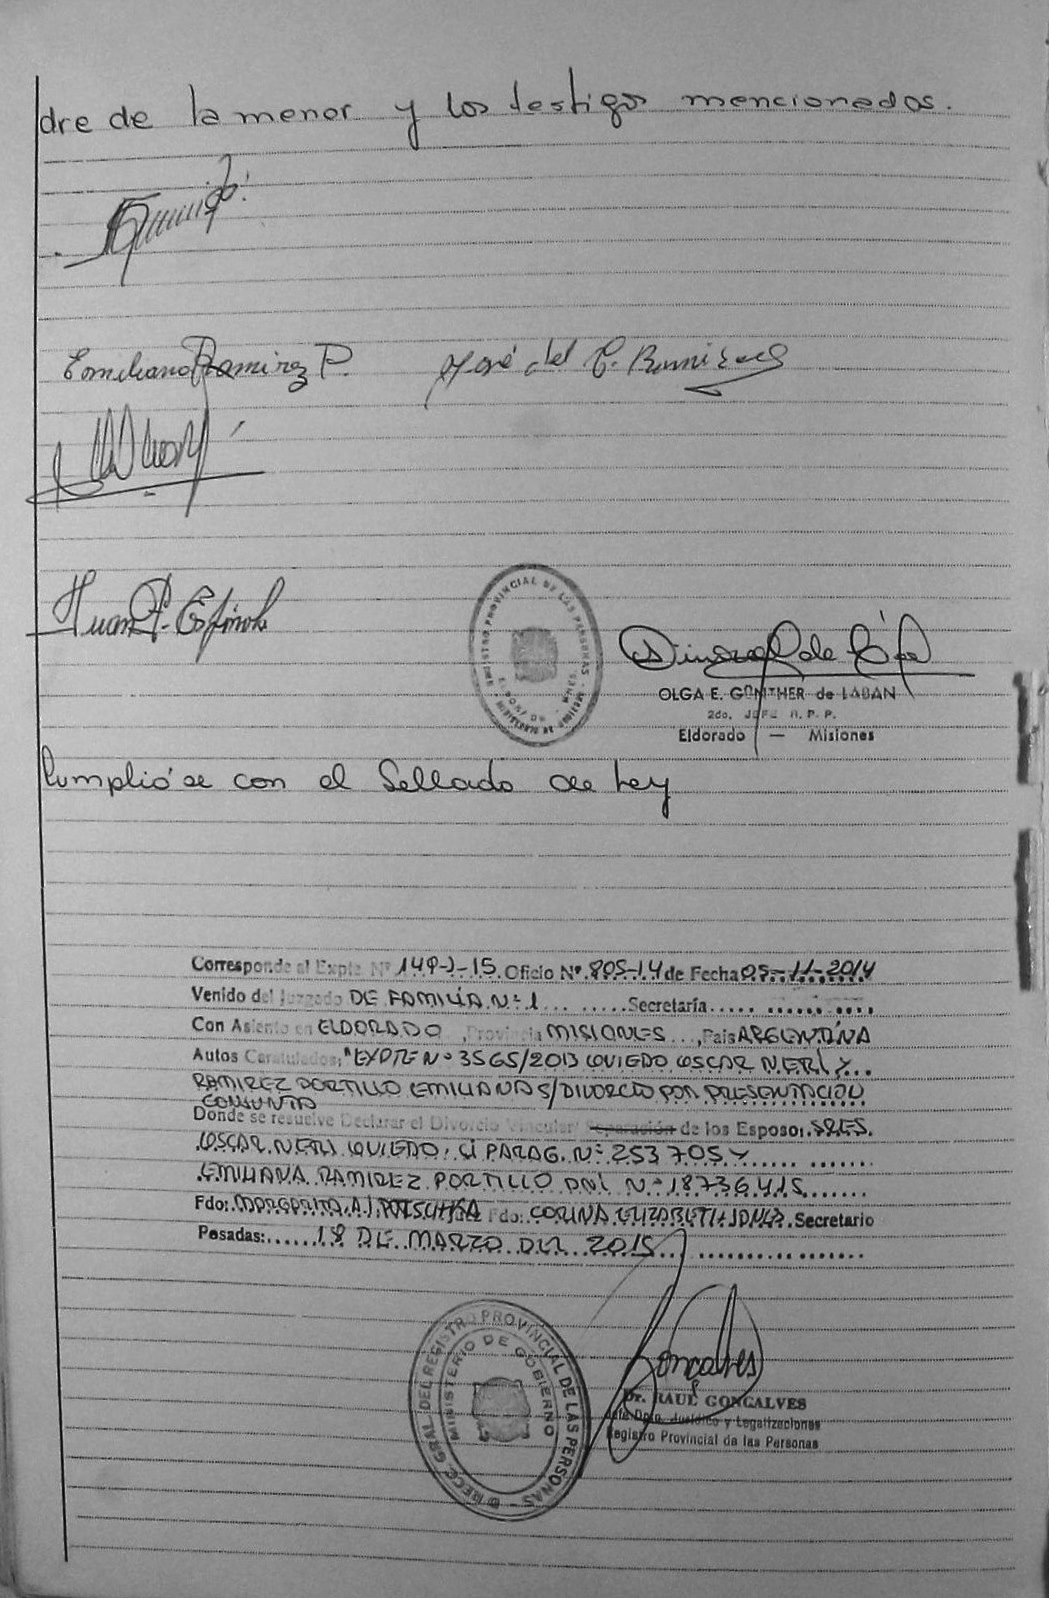 dre de la menor y los testigos mencionados.
Emiliana Ramirez P. José del C. Ramirez
Juan P. Espinola
REGISTRO PROVINCIAL DE LAS PERSONAS
OLGA E. GÜNTHER de LABAN
2do. JEFE R. P. P.
Eldorado — Misiones
Cumplióse con el Sellado de Ley
Corresponde al Expte. Nº 149-J-15. Oficio Nº 805-14 de Fecha 05-11-2014
Venido del Juzgado DE FAMILIA Nº 1 ........Secretaría..........
Con Asiento en ELDORADO, Provincia MISIONES..., País ARGENTINA
Autos Caratulados: "EXPTE Nº 3565/2013 OVIEDO OSCAR NERI Y...
RAMIREZ PORTILLO EMILIANA S/DIVORCIO POR PRESENTACION
CONJUNTA
Donde se resuelve Declarar el Divorcio Vincular/ Separación de los Esposo: SRES.
OSCAR NERI OVIEDO, CI PARAG. Nº 253705 Y
EMILIANA RAMIREZ PORTILLO DNI Nº 18736415
Fdo: MARGARITA A. J. Juez Fdo: CORINA ELIZABETH JONES. Secretario
Posadas:......18 DE MARZO DEL 2015
DECC. GRAL. DEL REGISTRO PROVINCIAL DE LAS PERSONAS
MINISTERIO DE GOBIERNO
Goncalves
Dr. RAUL GONCALVES
Jefe Dpto. Jurídico y Legalizaciones
Registro Provincial de las Personas